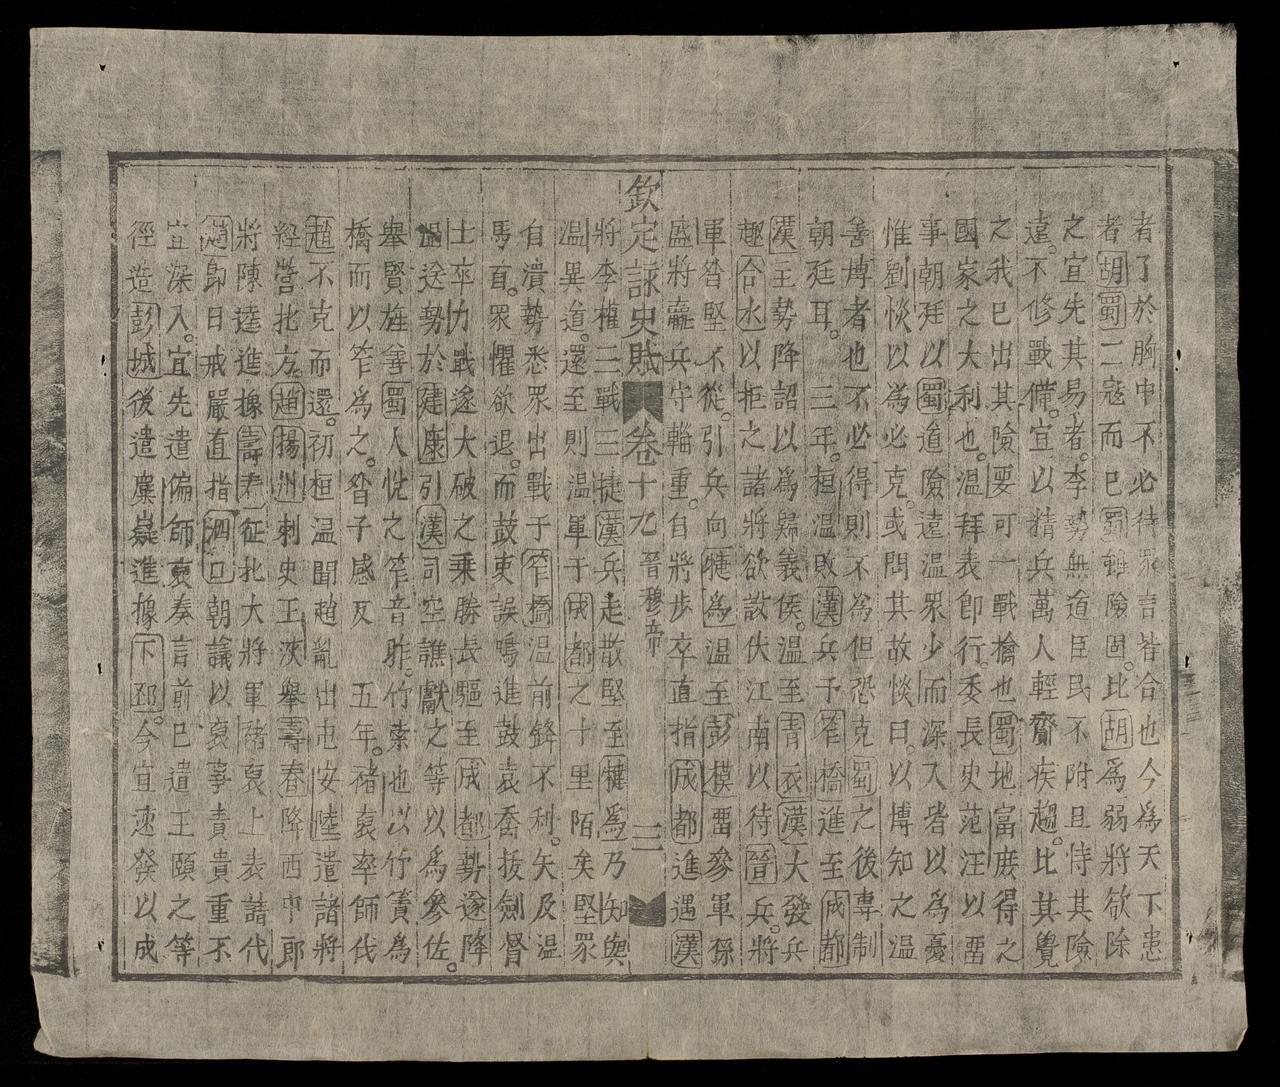 者了於胸中不必待眾言皆合也今為天下患
者胡蜀二寇而已蜀雖險固。比胡為弱將欲除
之宜先其易者。李勢無道臣民不附且恃其險
遠。不修戰備。宜以精兵萬人輕齎疾趨。比其覺
之我已出其險要可一戰擒也蜀地富庶得之
國家之大利也。溫拜表即行。委長史范汪以畱
事朝廷以蜀道險遠溫眾少而深入皆以為憂
惟劉惔以為必克。或問其故惔曰。以博知之溫
善博者也不必得則不為但恐克蜀之後專制
朝廷耳。　三年。桓溫敗漢兵于笮橋進至成都
漢主勢降詔以為歸義侯。溫至青衣漢大發兵
趣合水以拒之諸將欲設伏江南以待晉兵。將
軍昝堅不從。引兵向犍為溫至彭模畱參軍孫
盛將羸兵守輜重。自將步卒直指成都進遇漢
欽定詠史賦　卷十九　晉穆帝　三
將李權三戰三捷漢兵走散堅至犍為乃知與
溫異道。還至則溫軍于成都之十里陌矣堅眾
自潰勢悉眾出戰于笮橋溫前鋒不利。矢及溫
馬首。眾懼欲退。而鼓吏誤鳴進鼓袁喬拔劍督
士卒力戰遂大破之乘勝長驅至成都勢遂降
溫送勢於建康引漢司空譙獻之等以為參佐。
舉賢旌善蜀人悅之笮音昨。竹索也以竹簀為
橋而以笮為之。昝子感反　五年。褚裒率師伐
趙不克而還。初桓溫聞趙亂出屯安陸遣諸將
經營北方。趙揚州刺史王浹舉壽春降西中郎
將陳逵進據壽春征北大將軍褚裒上表請代
趙即日戒嚴直指泗口朝議以裒事責貴重不
宜深入。宜先遣偏師裒奏言前已遣王頤之等
徑造彭城後遣糜嶷進據下邳。今宜速發以成